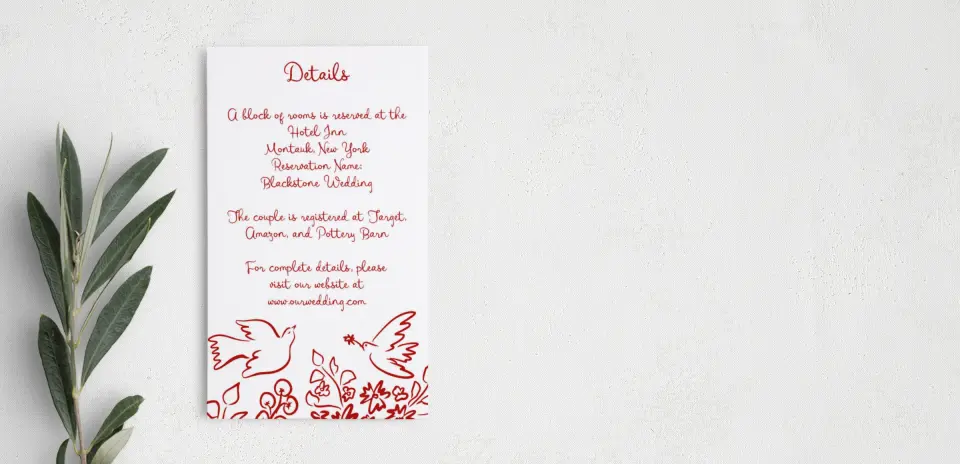 Details
A block of rooms is reserved at the
Hotel Inn
Montauk, New York
Reservation Name:
Blackstone Wedding
The couple is registered at Target,
Amazon, and Pottery Barn
For complete details, please
visit our website at
www.ourwedding.com